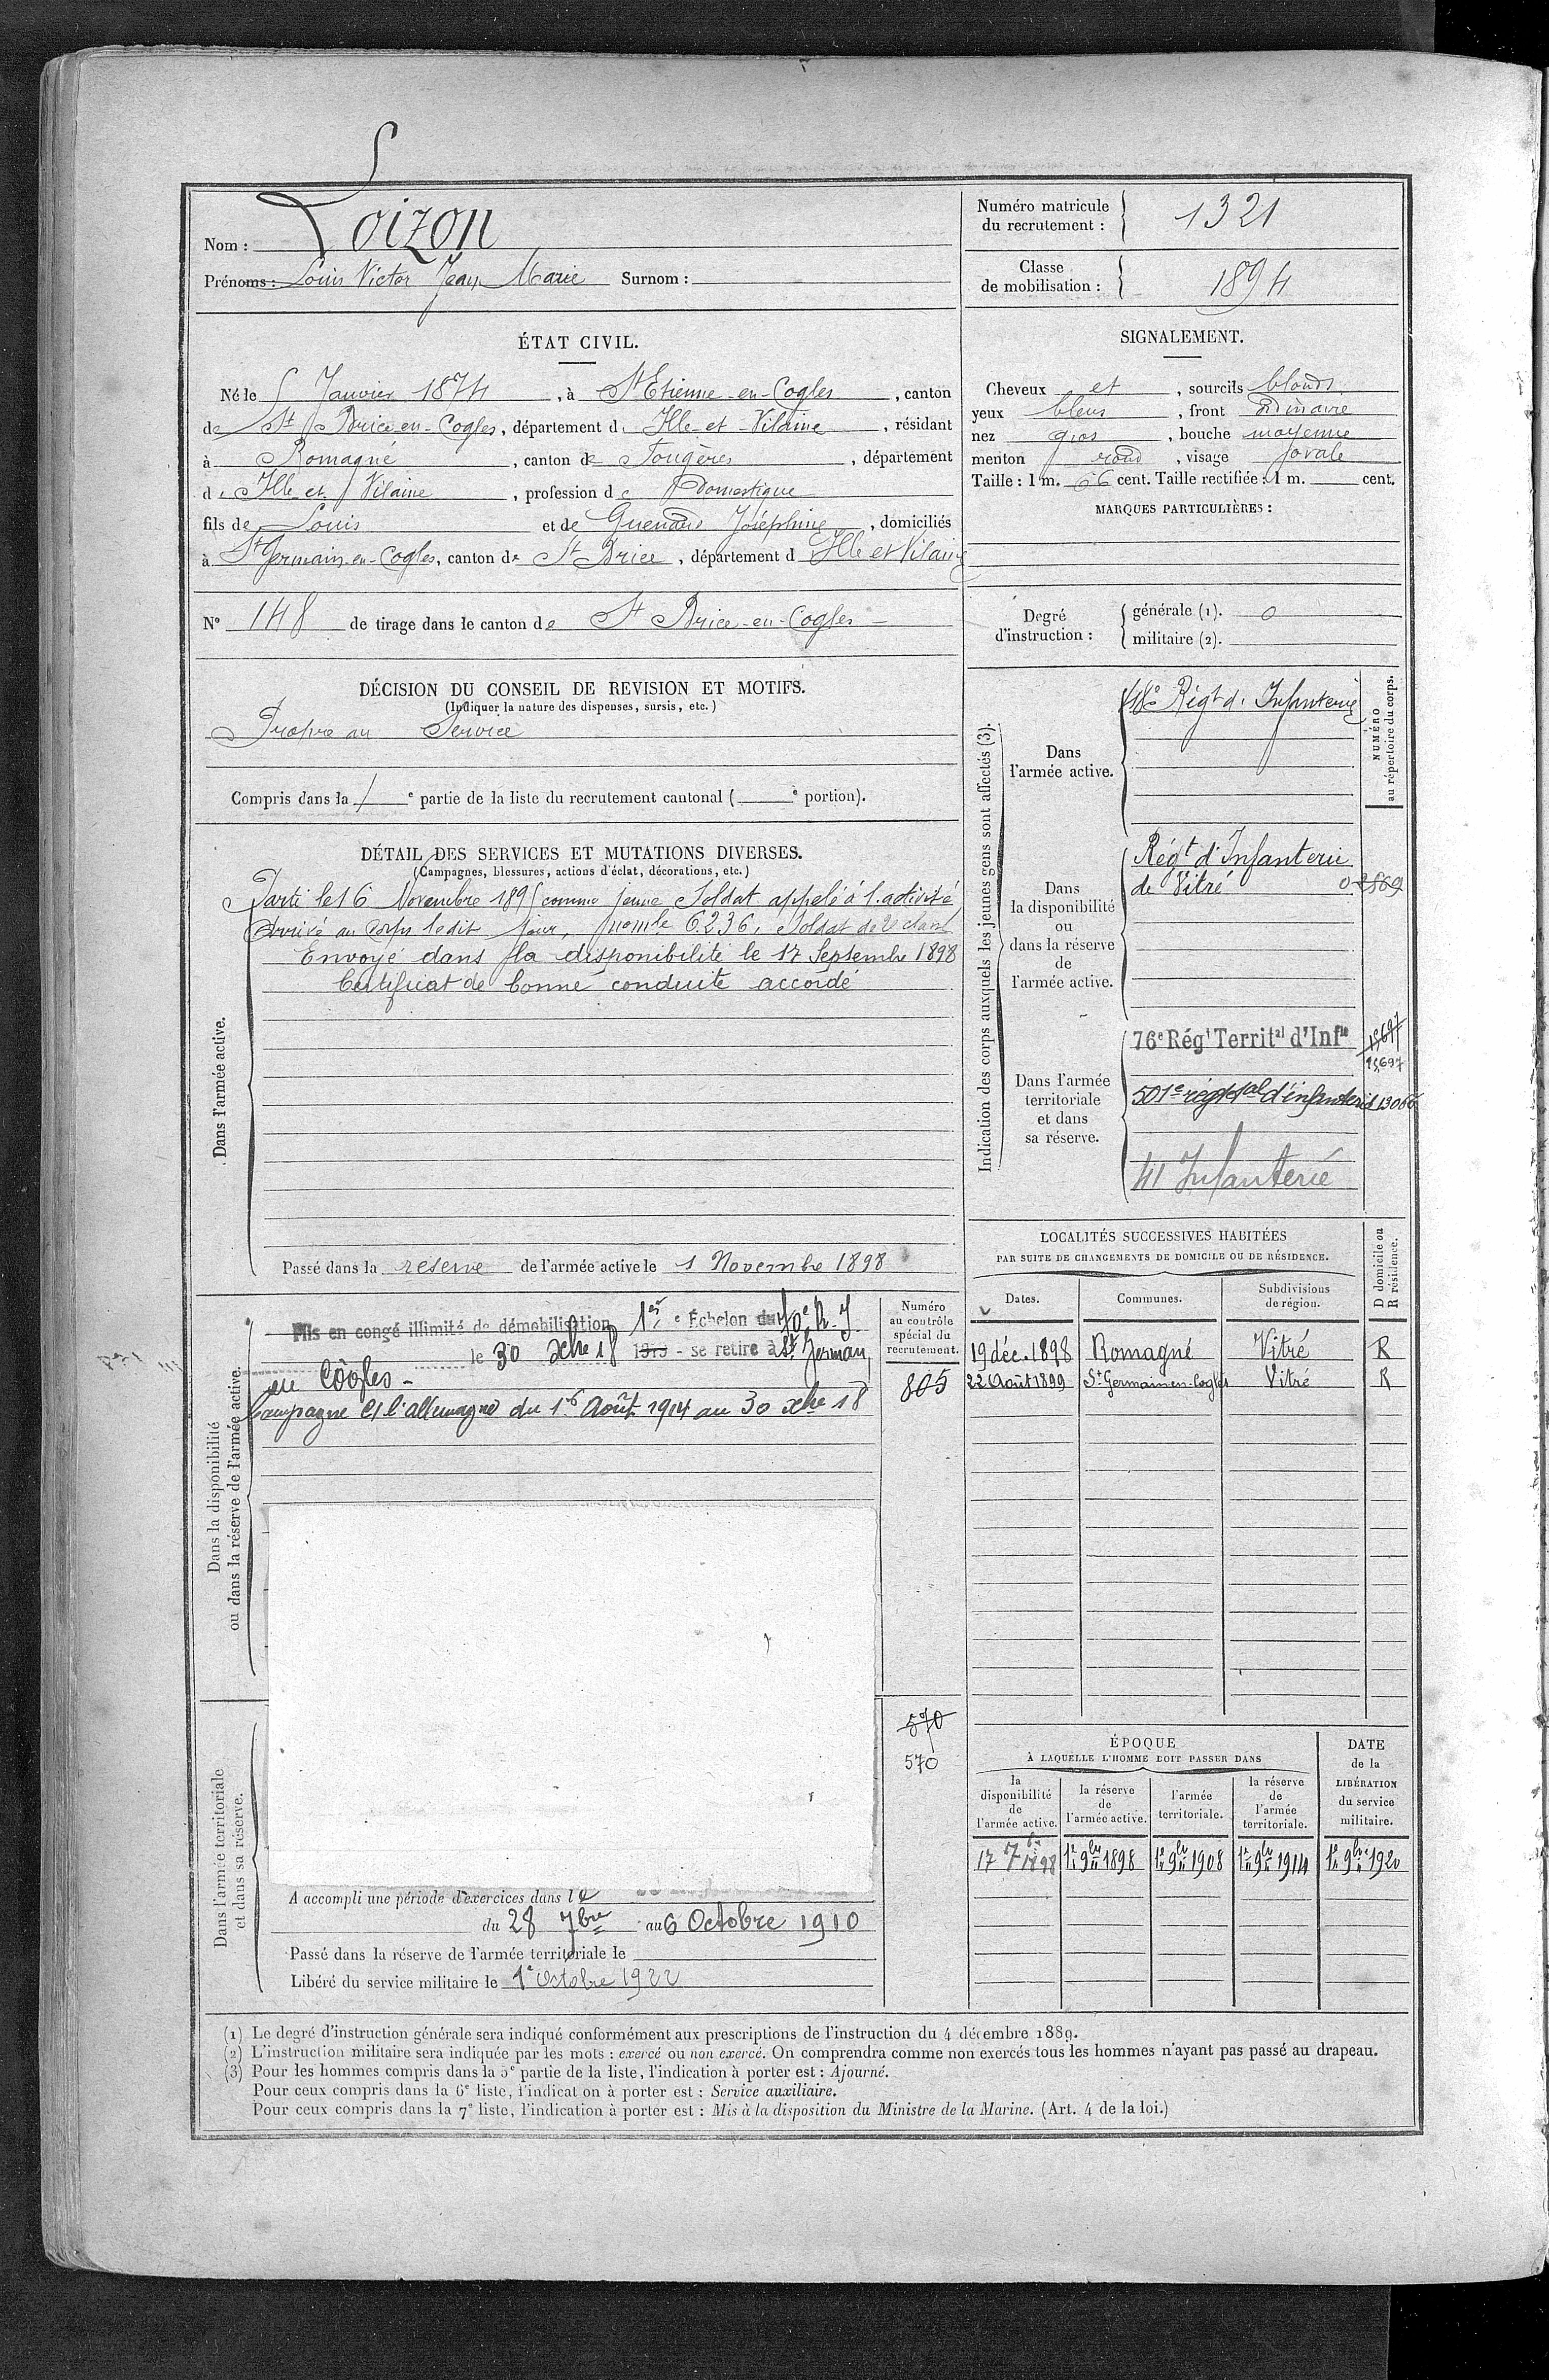 Nom : Loizon
Prénoms : Louis Victor Jean Marie Surnom :
Numéro matricule du recrutement : 1321
Classe de mobilisation : 1894
ÉTAT CIVIL.
Né le 5 Janvier 1874, à St Etienne-en-Cogles, canton
de St Brice-en-Cogles, département d Ille-et-Vilaine, résidant
à Romagné, canton de Fougères, département
d Ille et Vilaine, profession de Domestique
fils de Louis et de Joséphine, domiciliés
à St Germain-en-Cogles, canton de St Brice, département d Ille et Vilaine
N° 148 de tirage dans le canton de St Brice-en-Cogles
SIGNALEMENT.
Cheveux et, sourcils blonds
yeux bleus, front ordinaire
nez gros, bouche moyenne
menton rond, visage ovale
Taille : 1 m. 66 cent. Taille rectifiée : 1 m. cent.
MARQUES PARTICULIÈRES :
Degré d'instruction : générale (1). 0
militaire (2).
DÉCISION DU CONSEIL DE REVISION ET MOTIFS.
(Indiquer la nature des dispenses, sursis, etc.)
Propre au Service
Compris dans la 1 e partie de la liste du recrutement cantonal ( e portion).
DÉTAIL DES SERVICES ET MUTATIONS DIVERSES.
(Campagnes, blessures, actions d'éclat, décorations, etc.)
Dans l'armée active.
Parti le 16 Novembre 1895 comme jeune Soldat appelé à l'activité
Arrivé au Corps ledit jour, 6236, Soldat de 2e classe
Envoyé dans la disponibilité le 17 Septembre 1898
Certificat de bonne conduite accordé
Passé dans la réserve de l'armée active le 1 Novembre 1898
Indication des corps auxquels les jeunes gens sont affectés (3).
NUMÉRO au répertoire du corps.
Dans l'armée active.
48e Régt d' Infanterie
Dans la disponibilité ou dans la réserve de l'armée active.
Régt d'Infanterie
de Vitré
Dans l'armée territoriale et dans sa réserve.
76e Régt Territal d'Infie 15697
15,697
501e régt tal d'infanterie 13066
41 Infanterie
Dans la disponibilité ou dans la réserve de l'armée active.
Numéro au contrôle spécial du recrutement.
805
Mis en congé illimité de démobilisation 1er e Échelon du 70e R.I
le 30 xbre 18 1919 - se retire à St Germain
en Cogles -
Campagne C/ l'allemagne du 1er Août 1914 au 30 xbre 18
LOCALITÉS SUCCESSIVES HABITÉES
PAR SUITE DE CHANGEMENTS DE DOMICILE OU DE RÉSIDENCE.
Dates. Communes. Subdivisions de région. D domicile ou R résidence.
19 déc. 1898 Romagné Vitré R
22 Août 1899 St Germain en Cogles Vitré R
Dans l'armée territoriale et dans sa réserve.
570
570
A accompli une période d'exercices dans le
du 28 7bre au 6 Octobre 1910
Passé dans la réserve de l'armée territoriale le
Libéré du service militaire le 1er Octobre 1922
ÉPOQUE
À LAQUELLE L'HOMME DOIT PASSER DANS
la disponibilité de l'armée active. la réserve de l'armée active. l'armée territoriale. la réserve de l'armée territoriale. DATE de la LIBÉRATION du service militaire.
17 7bre 1898 1er 9bre 1898 1er 9bre 1908 1er 9bre 1914 1er 9bre 1920
(1) Le degré d'instruction générale sera indiqué conformément aux prescriptions de l'instruction du 4 décembre 1889.
(2) L'instruction militaire sera indiquée par les mots : exercé ou non exercé. On comprendra comme non exercés tous les hommes n'ayant pas passé au drapeau.
(3) Pour les hommes compris dans la 5e partie de la liste, l'indication à porter est : Ajourné.
Pour ceux compris dans la 6e liste, l'indication à porter est : Service auxiliaire.
Pour ceux compris dans la 7e liste, l'indication à porter est : Mis à la disposition du Ministre de la Marine. (Art. 4 de la loi.)